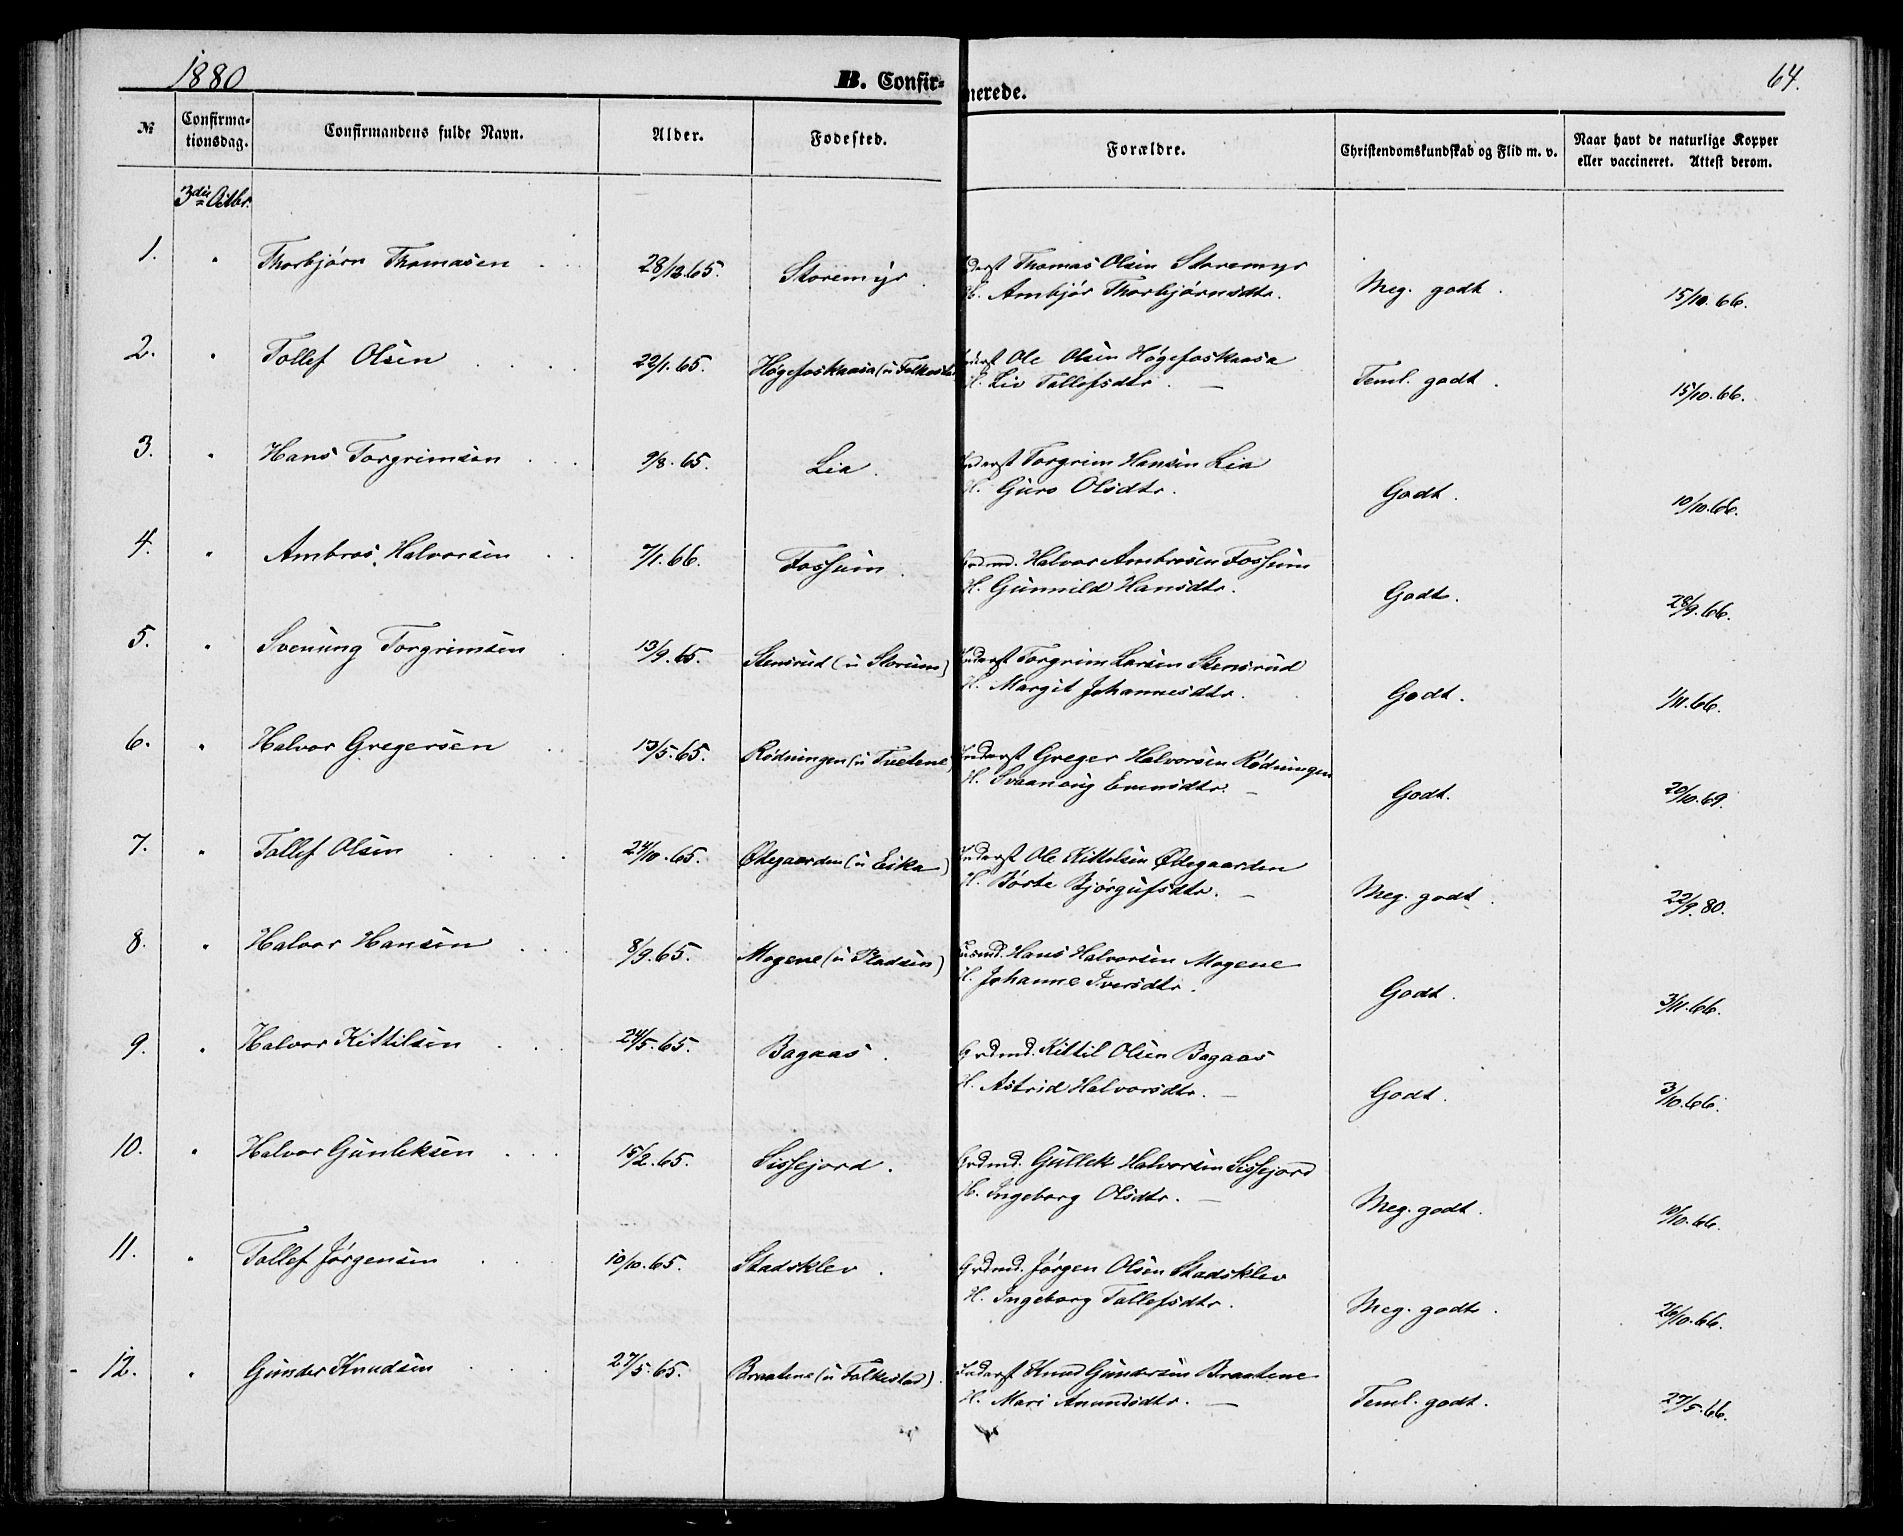 1880
B. Confir-
merede.
64.
№
Confirma-
tionsdag.
Confirmandens fulde Navn.
Alder.
Fødested.
Forældre.
Christendomskundskab og Flid m. v.
Naar havt de naturlige Kopper
eller vaccineret. Attest derom.
3die Octbr.
1. " Thorbjørn Thomasen 28/12.65. Storemyr. Inderst Thomas Olsen Storemyr
H. Ambjør Thorbjørnsdtr. Meg. godt. 15/10.66.
2. " Tollef Olsen 22/1.65. Høgefoskaasa (u Folkestad Inderst Ole Olsen Høgefoskaasa
H. Liv Tollefsdtr. — Teml. godt. 15/10.66.
3. " Hans Torgrimsen 9/8.65. Lia. Inderst Torgrim Hansen Lia
H. Guro Olsdtr. Godt. 10/10.66.
4. " Ambros Halvorsen 7/1.66. Fossum. Grdmd. Halvor Ambrosen Fossum
H. Gunnild Hansdtr. Godt. 28/9.66.
5. " Svenung Torgrimsen 13/9.65. Stensrud (u Storum) Inderst Torgrim Larsen Stensrud
H. Margit Johannesdtr. Godt. 1/11.66.
6. " Halvor Gregersen 13/5.65. Rødningen (u Tvetene) Inderst Greger Halvorsen Rødningen
H. Svaanaug Evensdtr. — Godt. 20/10.69.
7. " Tollef Olsen 24/10.65. Ødegaarden (u Eika) Inderst Ole Kittelsen Ødegaarden
H. Børte Bjørgufsdtr. — Meg. godt. 22/9.80.
8. " Halvor Hansen 8/9.65. Mogene (u Pladsen) Husmd. Hans Halvorsen Mogene
H. Johanne Iversdtr. Godt. 3/11.66.
9. " Halvor Kittilsen 24/5.65. Bagaas. Grdmd. Kittil Olsen Bagaas
H. Astrid Halvorsdtr. — Godt. 3/10.66.
10. " Halvor Gunleksen 15/2.65. Sissejord. Grdmd. Gullek Halvorsen Sissejord
H. Ingeborg Olsdtr. — Meg. godt. 10/10.66.
11. " Tollef Jørgensen 10/10.65. Stadsklev. Grdmd. Jørgen Olsen Stadsklev
H. Ingeborg Tollefsdtr. Meg. godt. 26/10.66.
12. " Gunder Knudsen 27/5.65. Braatene (u Folkestad). Inderst Knud Gundersen Braatene
H. Mari Anundsdtr. — Teml. godt. 27/5.66.